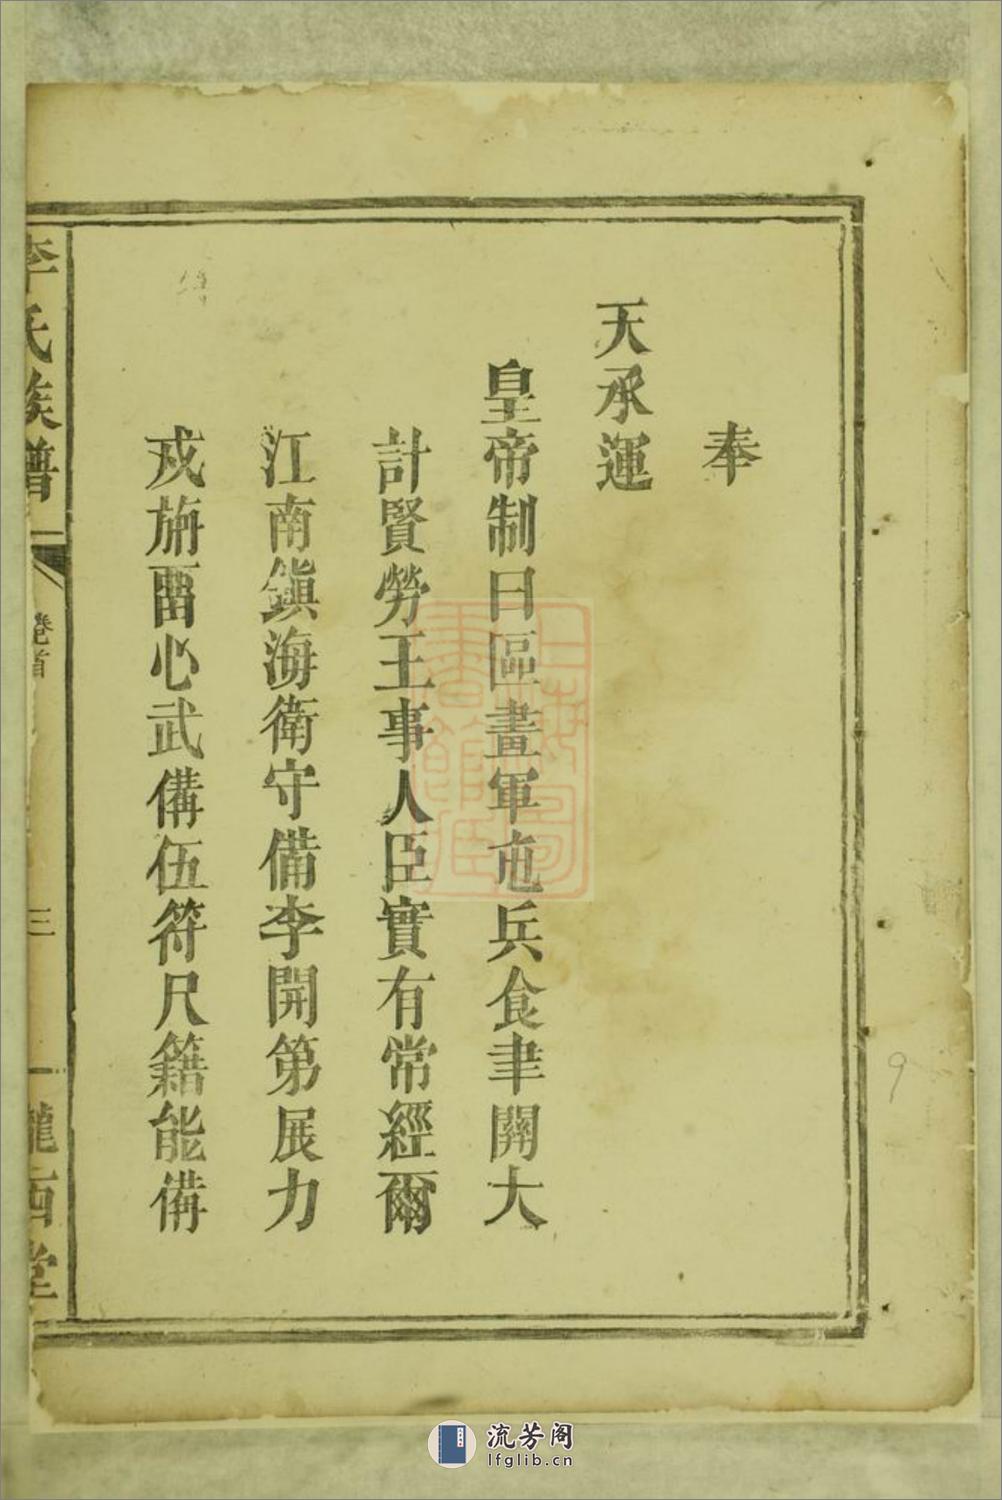 奉
天承運
皇帝制曰區畫軍屯兵食聿關大
計賢勞王事人臣實有常經爾
江南鎮海衛守備李開第展力
戎旃畱心武備伍符尺籍能備
李氏族譜
卷首
三
隴西堂
上海圖書館藏
9
流芳阁
lfglib.cn